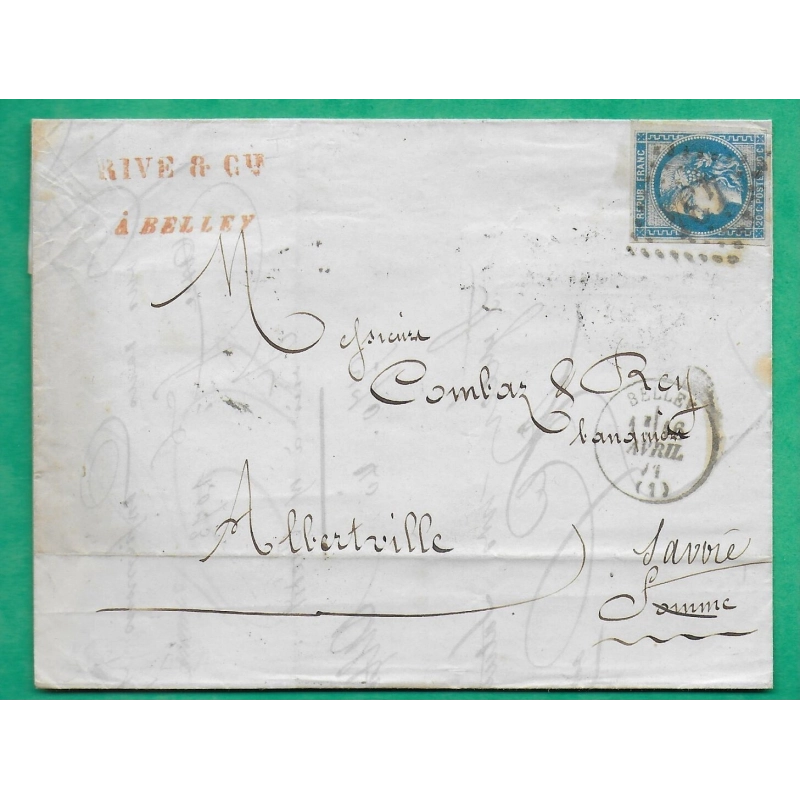 RIVE & CIE
À BELLEY
REPUB. FRANC.
20 C. POSTES 20 C.
M
Messieurs
Combaz & Rey
banquiers
BELLEY
16
AVRIL
71
(1)
Albertville
Savoie
Somme